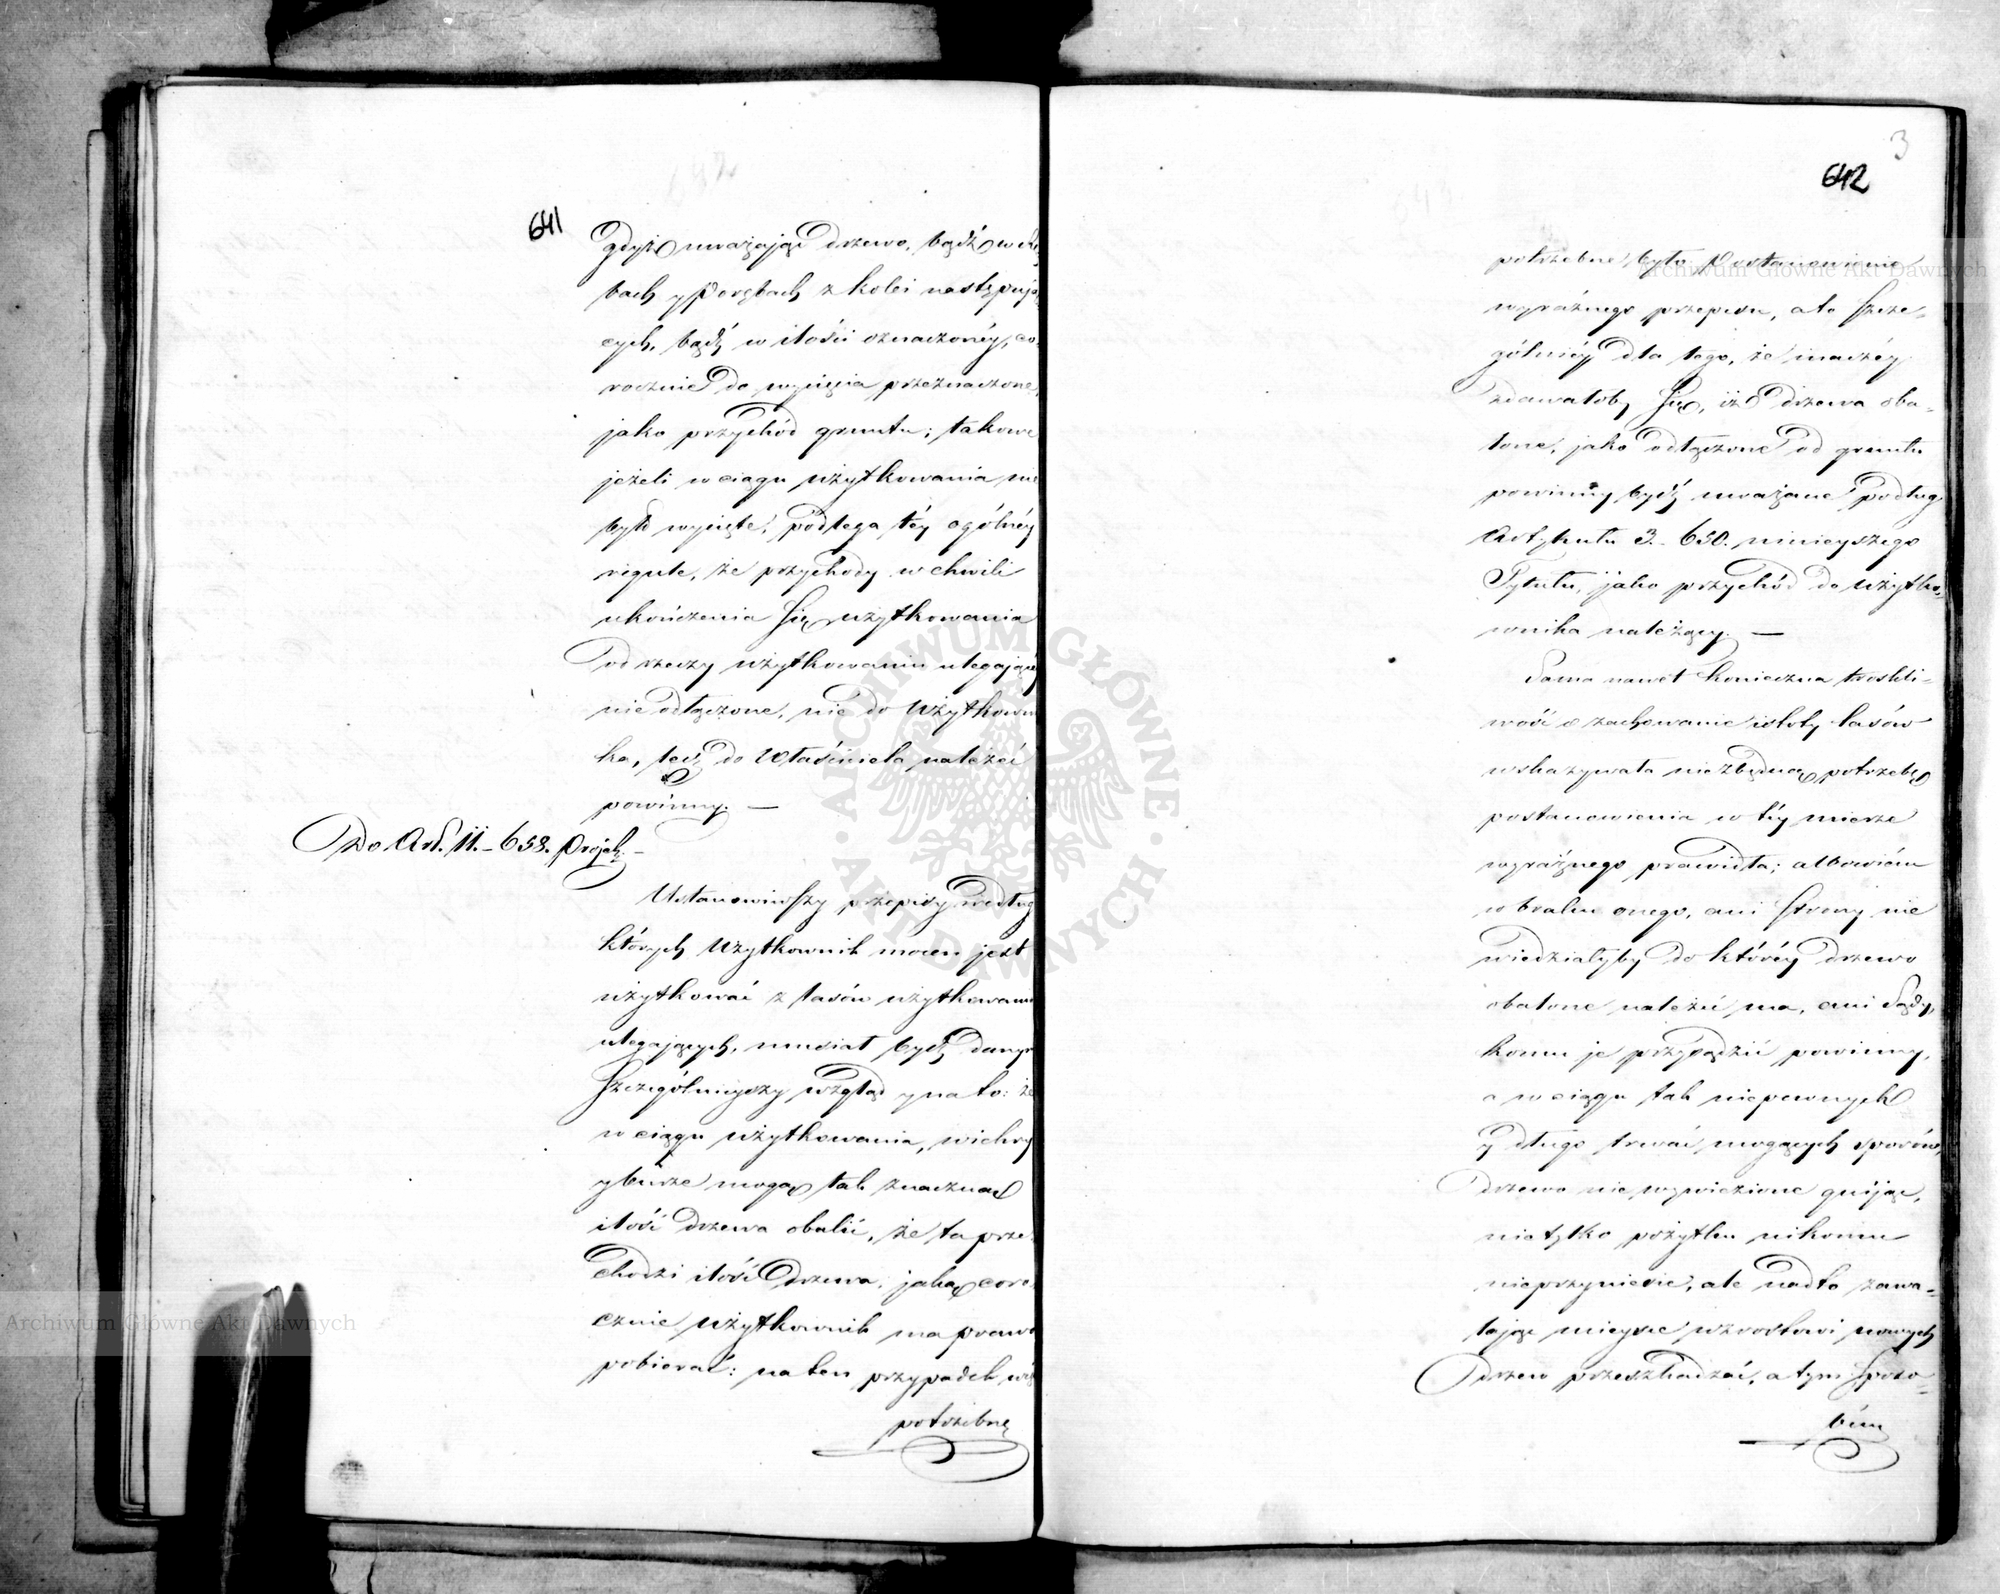 641
gdyż uważając drzewo, bądź w rę
bach y Porębach z kolei następują
cych, bądź w ilości oznaczonéy, co
rocznie do wycięcia przeznaczone,
jako przychód gruntu; takowe
jeżeli w ciągu użytkowania nie
było wycięte, podlega téy ogólnéy
regule, że przychody w chwili
ukończenia się użytkowania
od rzeczy użytkowaniu ulegającéy
nie odłączone, nie do Użytkowni
ka, lecz do Właściciela należéć
powinny. —
Do Art. 11. – 658. Projek. –
Ustanowiwszy przepisy według
których Użytkownik mocen jest
użytkować z lasów użytkowaniu
ulegających, musiał bydź danym
szczególnieyszy wzgląd y na to: że
w ciągu użytkowania, wichry
y burze mogą tak znaczną
ilość drzewa obalić, że ta prze
chodzi ilość drzewa, jaką coro
cznie użytkownik ma prawo
pobierać: na ten przypadek więc
potrzebne
3
642
potrzebne było Postanowienie
wyraźnego przepisu, a to szcze-
gólniéy dla tego, że inaczéy
zdawałoby się, iż drzewa oba-
lone, jako odłączone od gruntu
powinny bydź uważane podług
Artykułu 3. – 650. ninieyszego
Tytułu, jako przychód do użytko-
wnika należący. —
Sama nawet konieczna troskli-
wość o zachowanie istoty lasów
wskazywała niezbędną potrzebę
postanowienia w téy mierze
wyraźnego prawidła; albowiem
w braku onego, ani strony nie
wiedziałyby do któréy drzewo
obalone należéć ma, ani Sądy,
komu je przysądzić powinny,
a w ciągu tak niepewnych
y długo trwać mogących sporów,
drzewo nie wywiezione gnijąc,
nie tylko pożytku nikomu
nieprzyniesie, ale nadto zawa-
lając mieysce wzrostowi nowych
drzew przeszkadzać, a tym sposo-
bem
Archiwum Główne Akt Dawnych
Archiwum Główne Akt Dawnych
ARCHIWUM GŁÓWNE AKT DAWNYCH